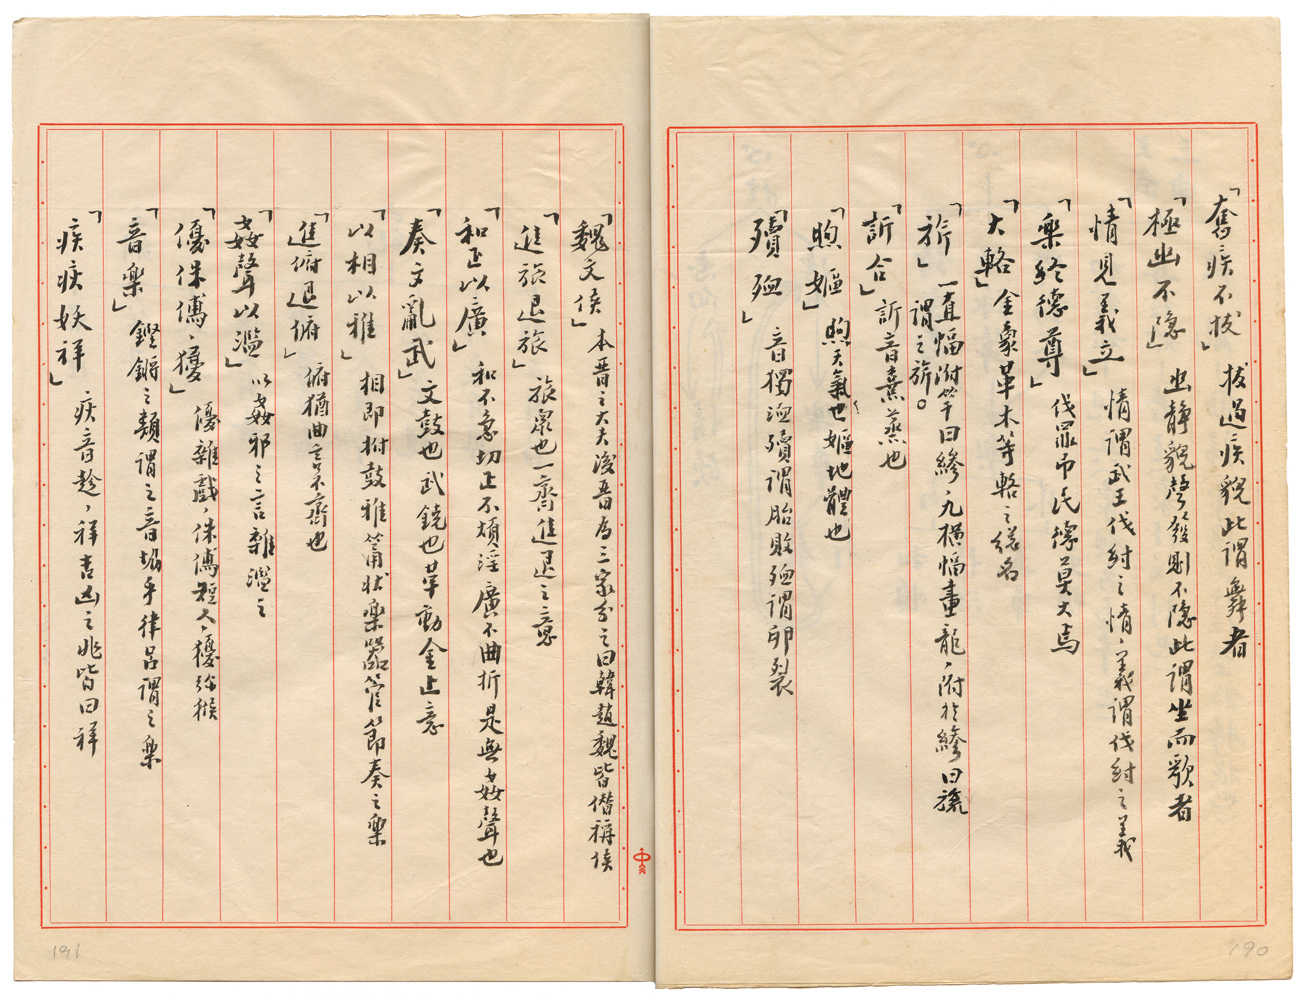 「奮疾不拔」 拔過疾貌此謂舞者
「極幽不隱」 幽靜貌聲發則不隱此謂坐而歌者
「情見義立」 情謂武王伐紂之情、義謂伐紂之義
「樂終德尊」 伐罪吊民德莫大焉
「大輅」 金象革木等輅之總名
「旂」 一直幅附竿曰縿九橫幅畫龍、附於縿曰旒
謂之旂。
「訢合」 訢音熹蒸也
「煦嫗」 煦天氣也嫗地體也
「殰殈」 音獨洫殰謂胎敗殈謂卵裂
190
「魏文侯」 本晋之大夫後晋為三家分之曰韓趙魏皆僭稱侯
「進旅退旅」 旅衆也一齊進退之意
「和正以廣」 和不急切正不煩淫廣不曲折是無姦聲也
「奏文亂武」 文鼓也武鐃也革動金止意
「以相以雅」 相即拊鼓雅篇狀樂器管節奏之樂
「進俯退俯」 俯猶曲言不齊也
「姦聲以濫」 以姦邪之言雜濫之
「優侏傅、獶」 優雜戲、侏傅短人、獶獼猴
「音樂」 鏗鏘之類謂之音協乎律呂謂之樂
「疾疢妖祥」 疢音趁、祥吉凶之兆皆曰祥
191